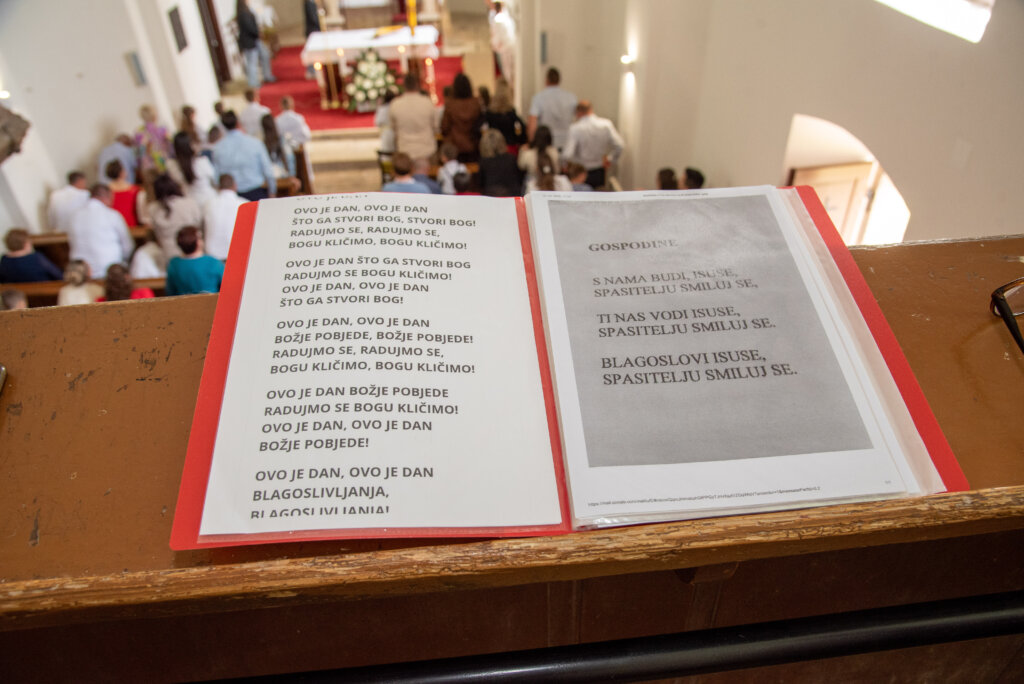 OVO JE DAN, OVO JE DAN
ŠTO GA STVORI BOG, STVORI BOG!
RADUJMO SE, RADUJMO SE,
BOGU KLIČIMO, BOGU KLIČIMO!
OVO JE DAN ŠTO GA STVORI BOG
RADUJMO SE BOGU KLIČIMO!
OVO JE DAN, OVO JE DAN
ŠTO GA STVORI BOG!
OVO JE DAN, OVO JE DAN
BOŽJE POBJEDE, BOŽJE POBJEDE!
RADUJMO SE, RADUJMO SE,
BOGU KLIČIMO, BOGU KLIČIMO!
OVO JE DAN BOŽJE POBJEDE
RADUJMO SE BOGU KLIČIMO!
OVO JE DAN, OVO JE DAN
BOŽJE POBJEDE!
OVO JE DAN, OVO JE DAN
BLAGOSLIVLJANJA,
BLAGOSLIVLJANJA!
GOSPODINE
S NAMA BUDI, ISUSE,
SPASITELJU SMILUJ SE,
TI NAS VODI ISUSE,
SPASITELJU SMILUJ SE.
BLAGOSLOVI ISUSE,
SPASITELJU SMILUJ SE.